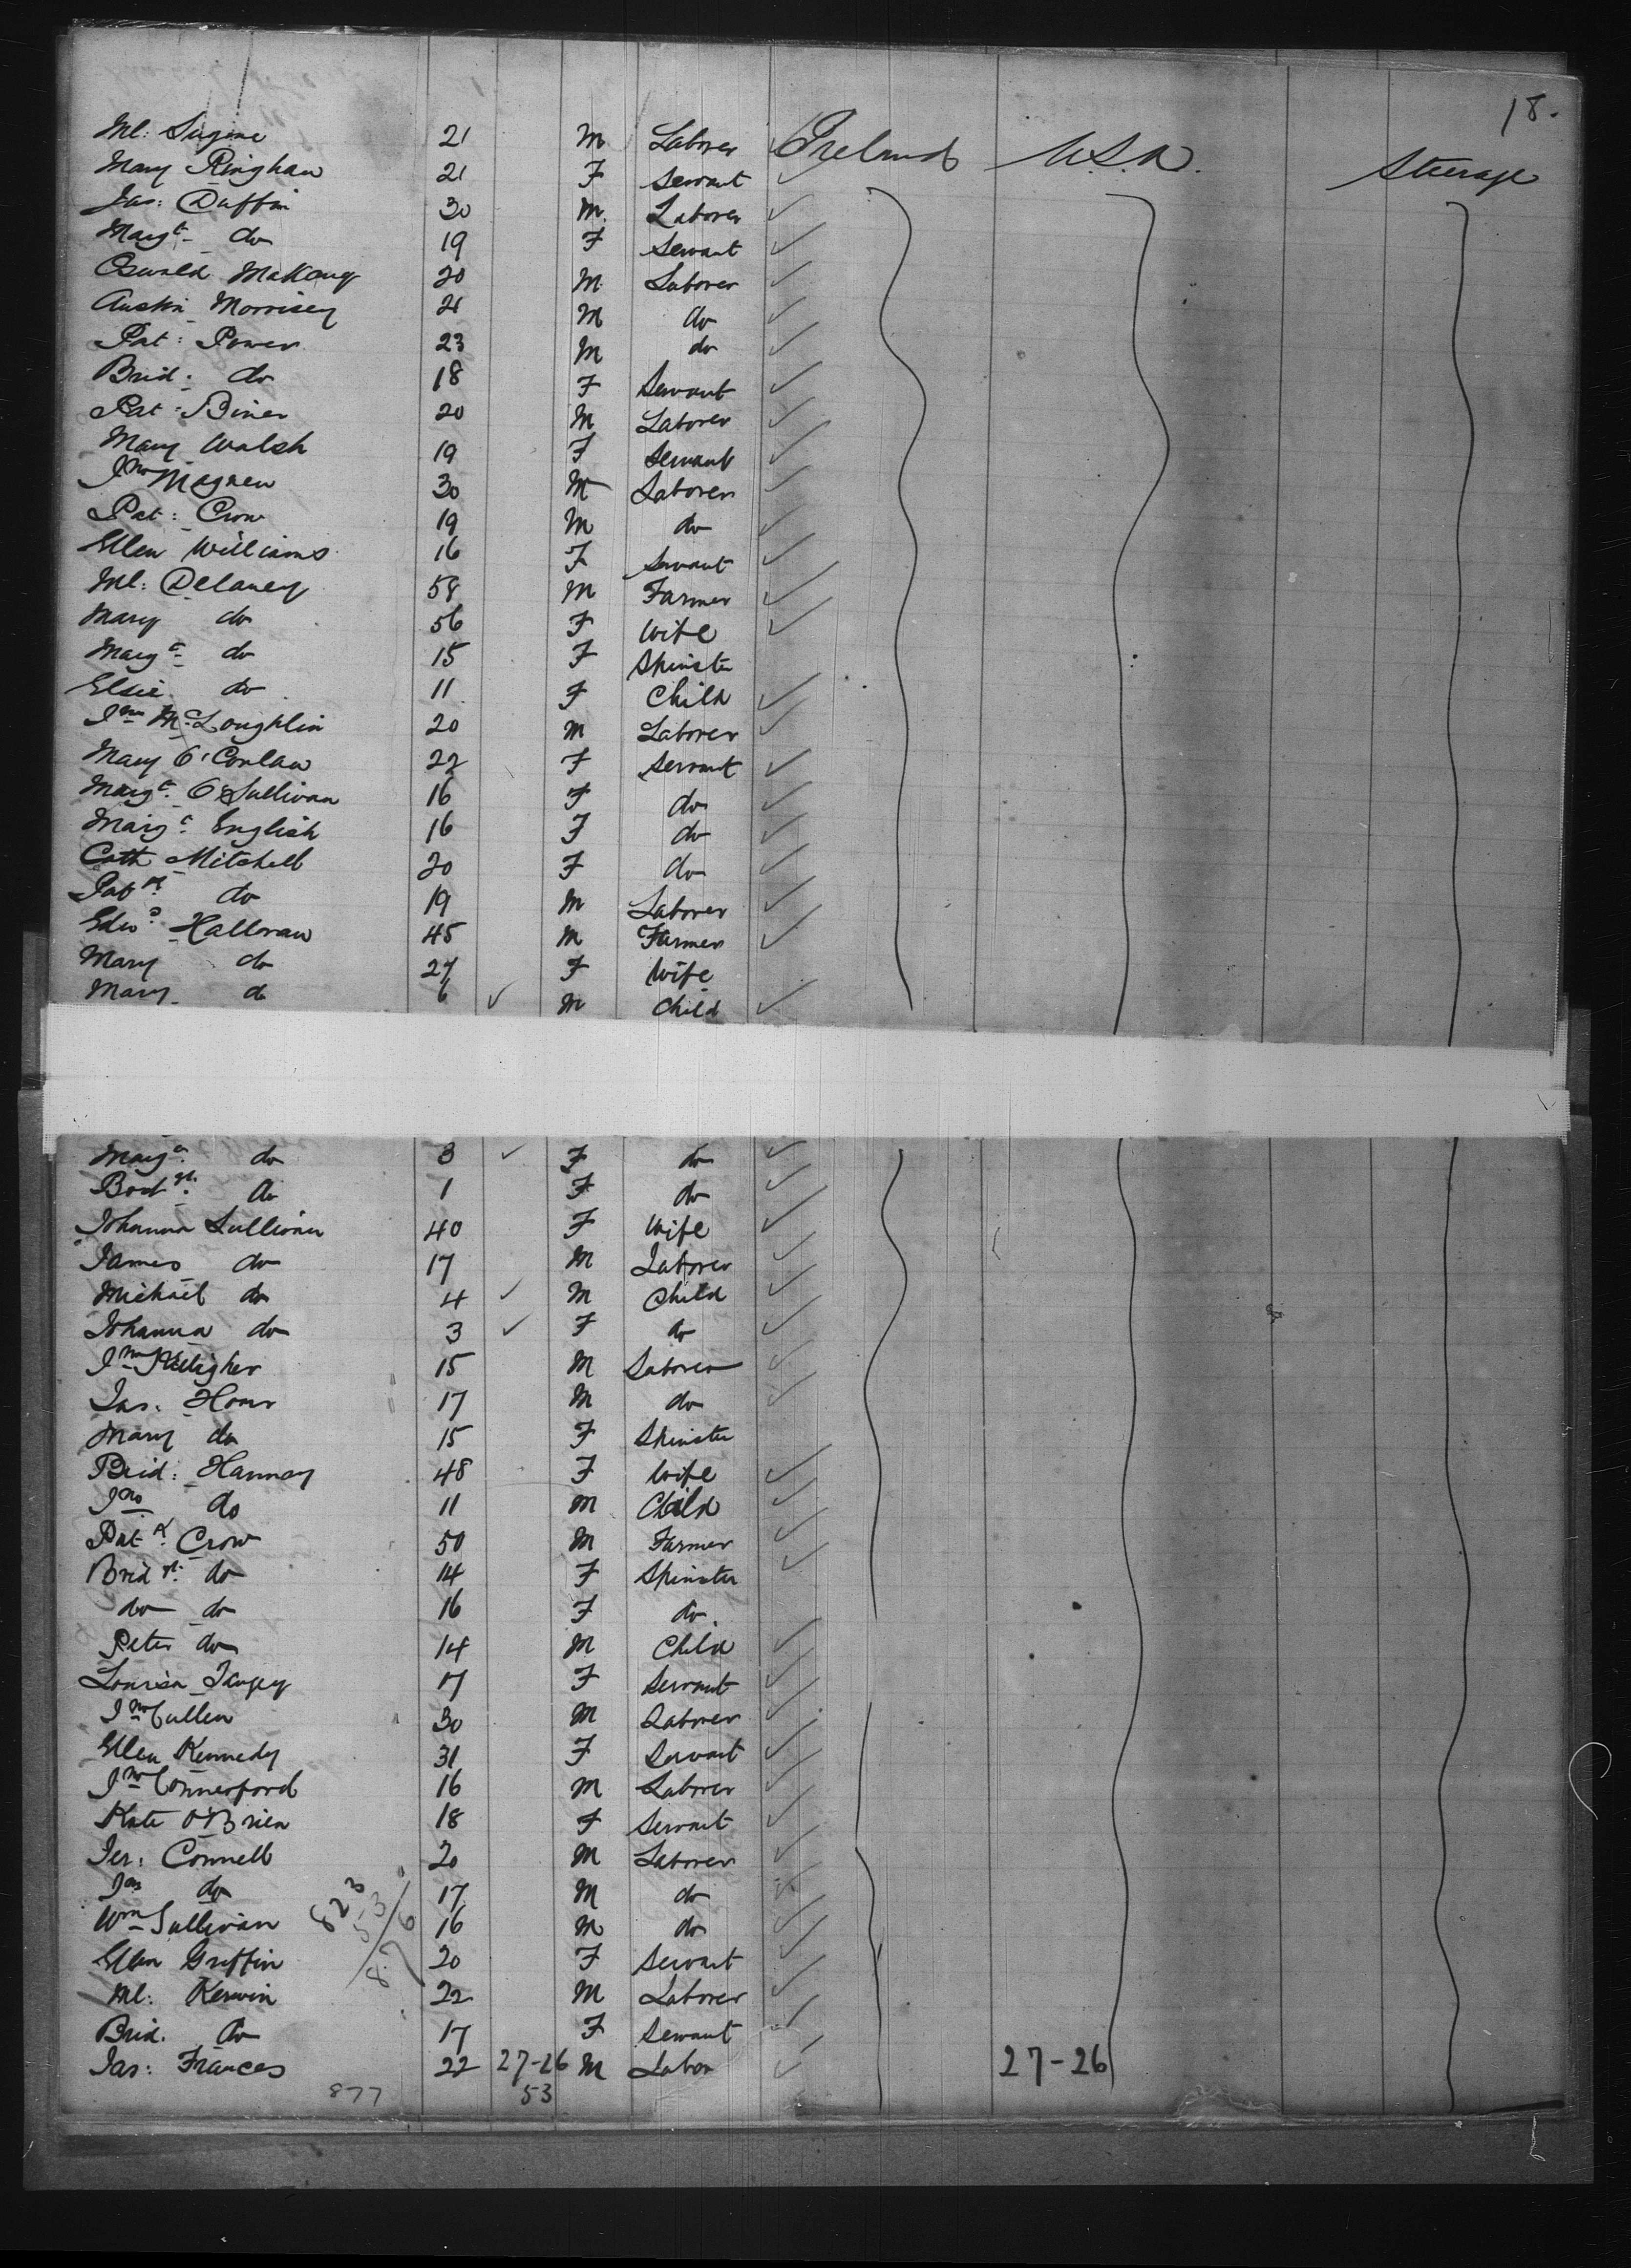 18.
Ml: Sugrue 21 M Laborer Ireland U.S.A. Steerage
Mary Ringhan 21 F Servant
Jas: Duffin 30 M. Laborer
Margt do 19 F Servant
Oswald 20 M Laborer
Austin Morrisey 21 M do
Pat: Power 23 M do
Brid: do 18 F Servant
Pat: 20 M Laborer
Mary Walsh 19 F Servant
Jno 30 M Laborer
Pat: Crow 19 M do
Ellen Williams 16 F Servant
Ml: Delaney 58 M Farmer
Mary do 56 F Wife
Margt do 15 F Spinster
Elsie do 11 F Child
Jno McLoughlin 20 M Laborer
Mary O'Conlan 22 F Servant
Margt. O'Sullivan 16 F do
Margt. English 16 F do
Cath Mitchell 20 F do
Patk do 19 M Laborer
Edwd Halloran 45 M Farmer
Mary do 27 F Wife
Mary do 6 M Child
Margt. do 3 F do
do 1 F do
Johanna Sullivan 40 F Wife
James do 17 M Laborer
Michael do 4 M Child
Johanna do 3 F do
Jno 15 M Laborer
Jas: 17 M do
Mary do 15 F Spinster
Brid: Hannay 48 F Wife
Jno do 11 M Child
Patk. Crow 50 M Farmer
Bridgt. do 14 F Spinster
do do 16 F do
Peter do 14 M Child
Louisa 17 F Servant
Jno Cullen 30 M Laborer
Ellen Kennedy 31 F Servant
Jno Connerford 16 M Laborer
Kate O'Brien 18 F Servant
Jer: Connell 20 M Laborer
Jas do 17 M do
Wm Sullivan 16 M do
823
53
876
Ellen Griffin 20 F Servant
Ml: Kerwin 22 M Laborer
Brid. do 17 F Servant
Jas: Frances 22 27-26 M Labor 27-26
877 53